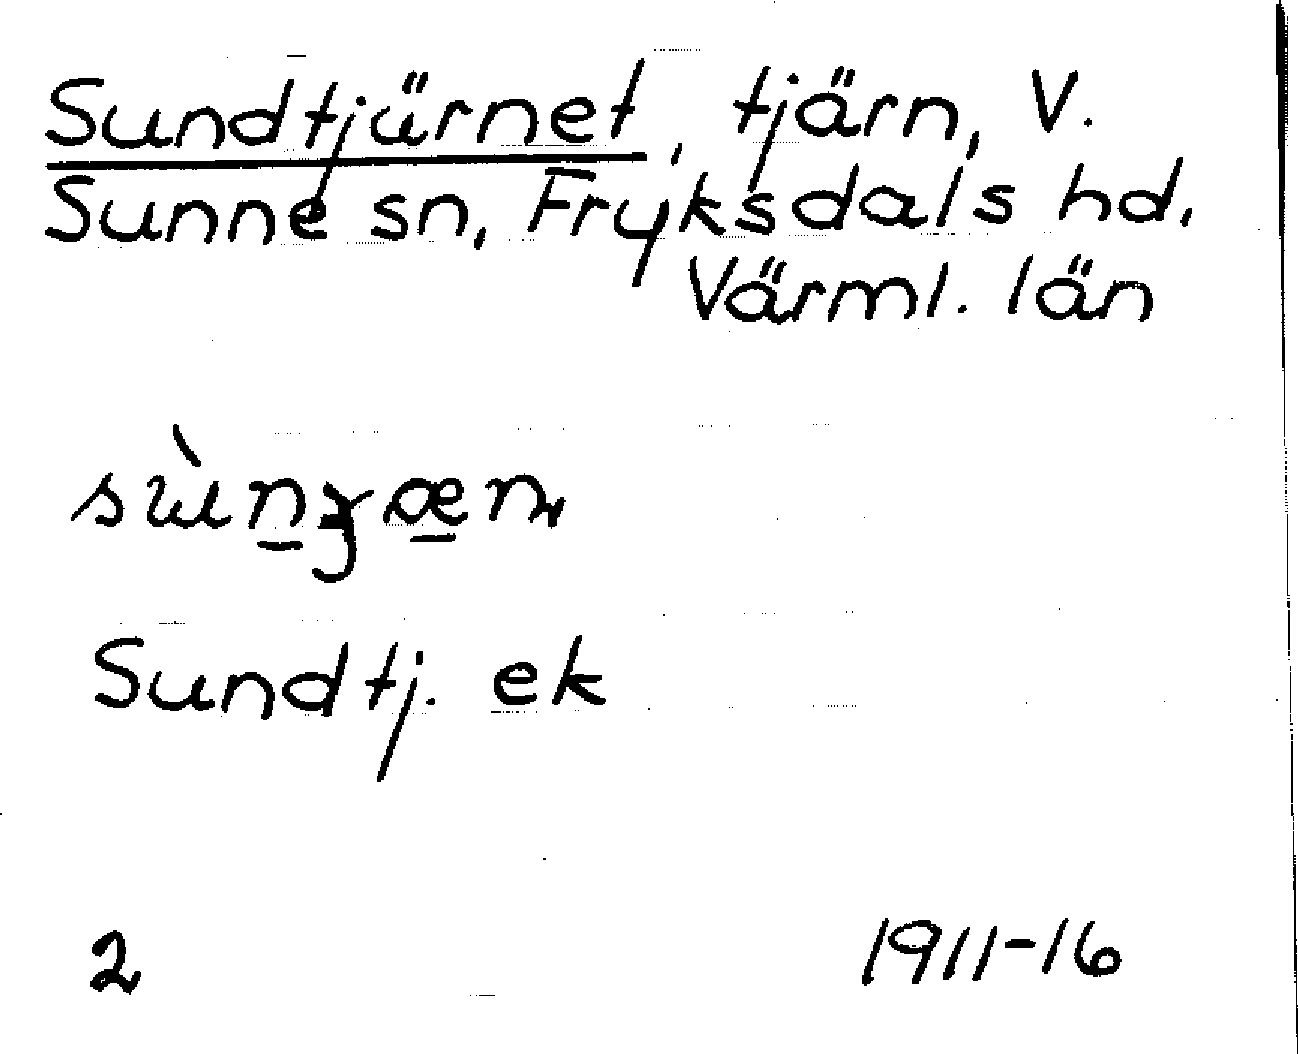 Sundtjärnet, tjärn, V.
Sunne sn, Fryksdals hd,
Värml. län
Sundtj. ek
2
1911-16